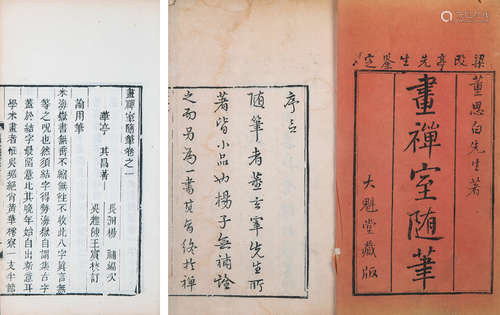 梁亭先生鑒定
董思白先生著
畫禪室隨筆
大魁堂藏版
序言
隨筆者董玄宰先生所
著皆小品也楊子無補詮
之而另為一書其旨終於禪
畫禪室隨筆卷之一
華亭 其昌著
長洲楊 補編次
吳趨 王 校訂
論用筆
米海嶽書無垂不縮無往不收此八字眞言無
等之呪也然須結字得勢海嶽自謂集古字
蓋於結字最留意比其晚年始自出新意耳
學米書者惟吳琚絕肖黃華樗寮一支半節